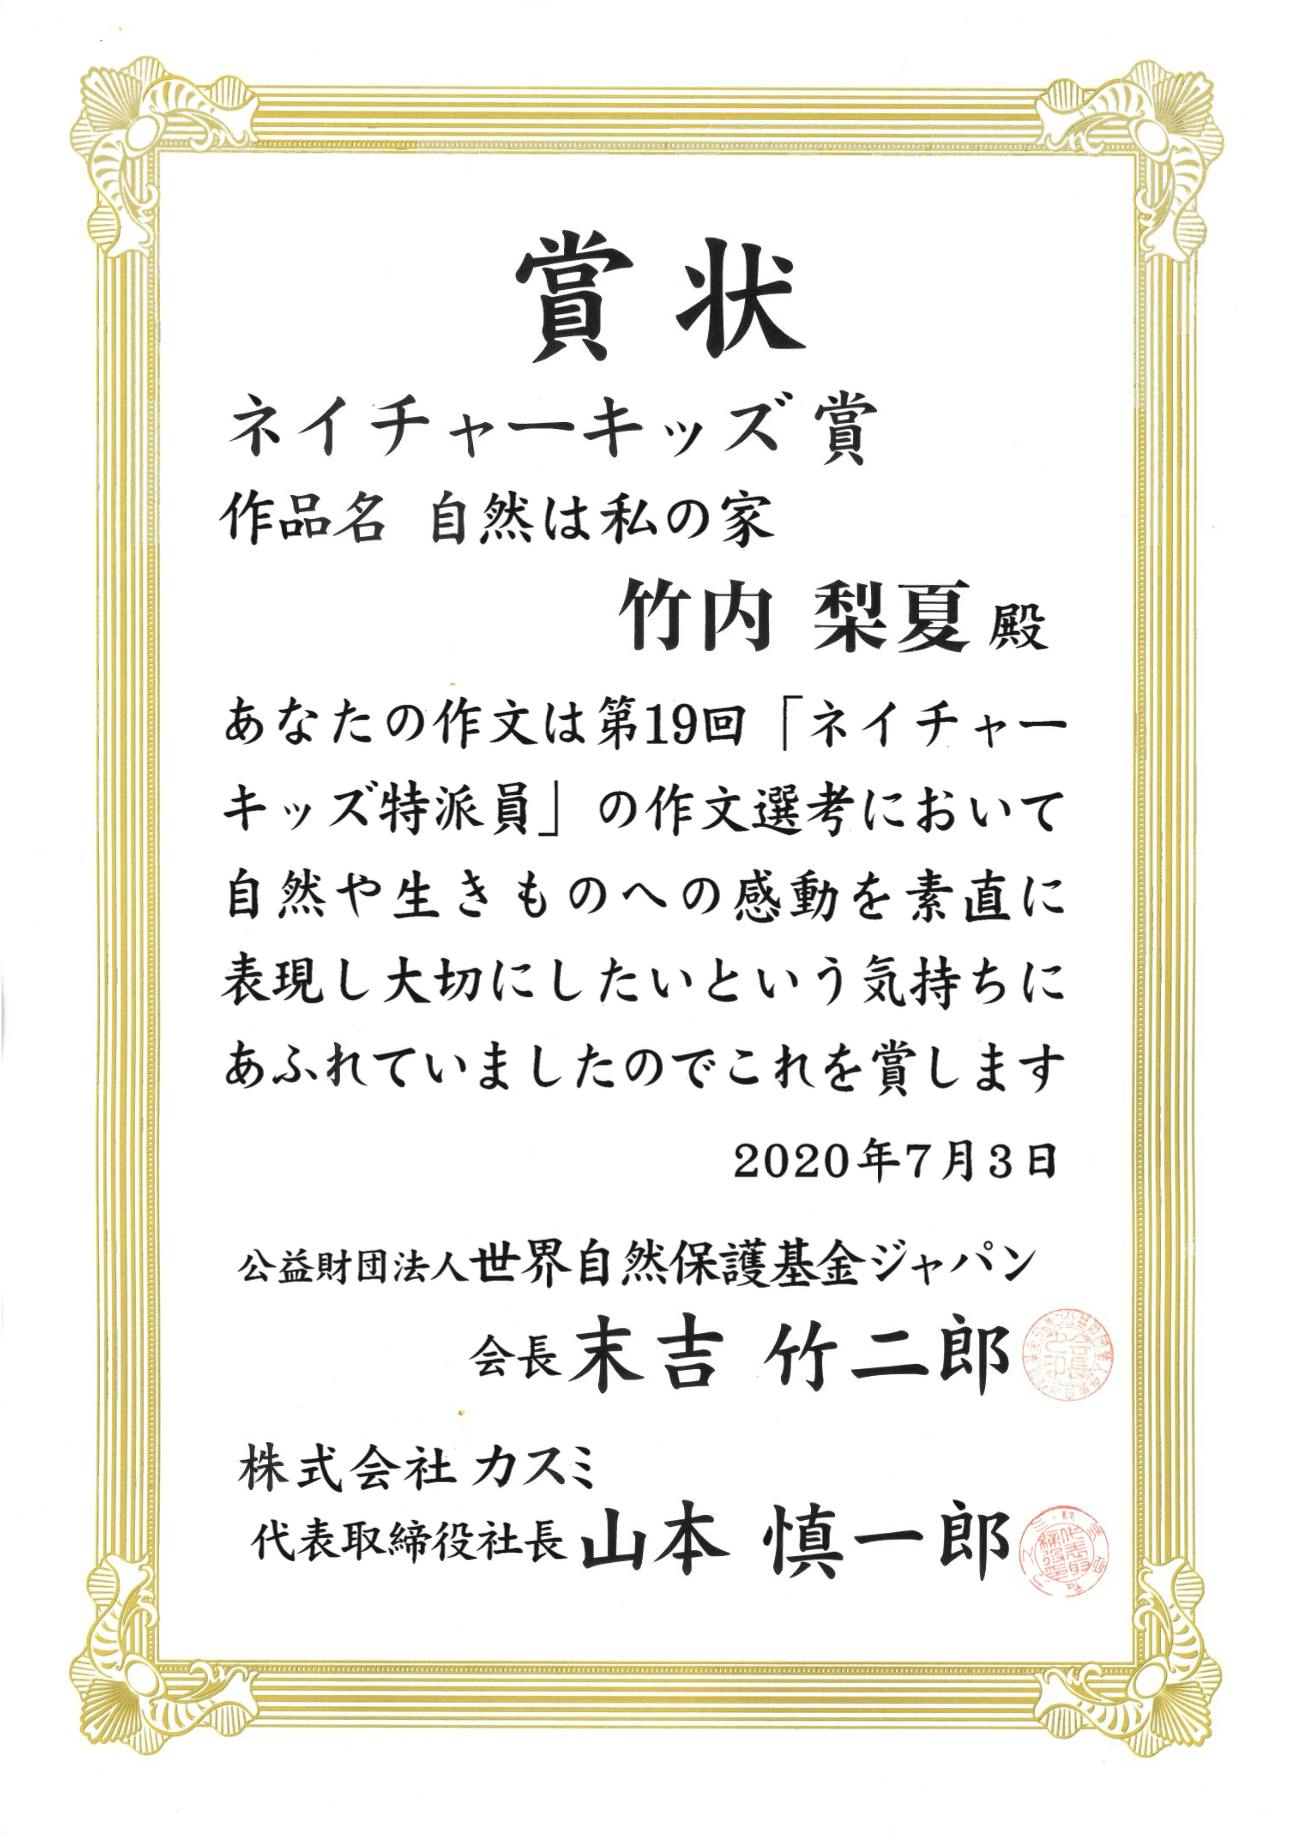 賞状
ネイチャーキッズ賞
作品名 自然は私の家
竹内 梨夏 殿
あなたの作文は第19回「ネイチャー
キッズ特派員」の作文選考において
自然や生きものへの感動を素直に
表現し大切にしたいという気持ちに
あふれていましたのでこれを賞します
2020年7月3日
公益財団法人世界自然保護基金ジャパン
会長 末吉 竹二郎
株式会社 カスミ
代表取締役社長 山本 慎一郎